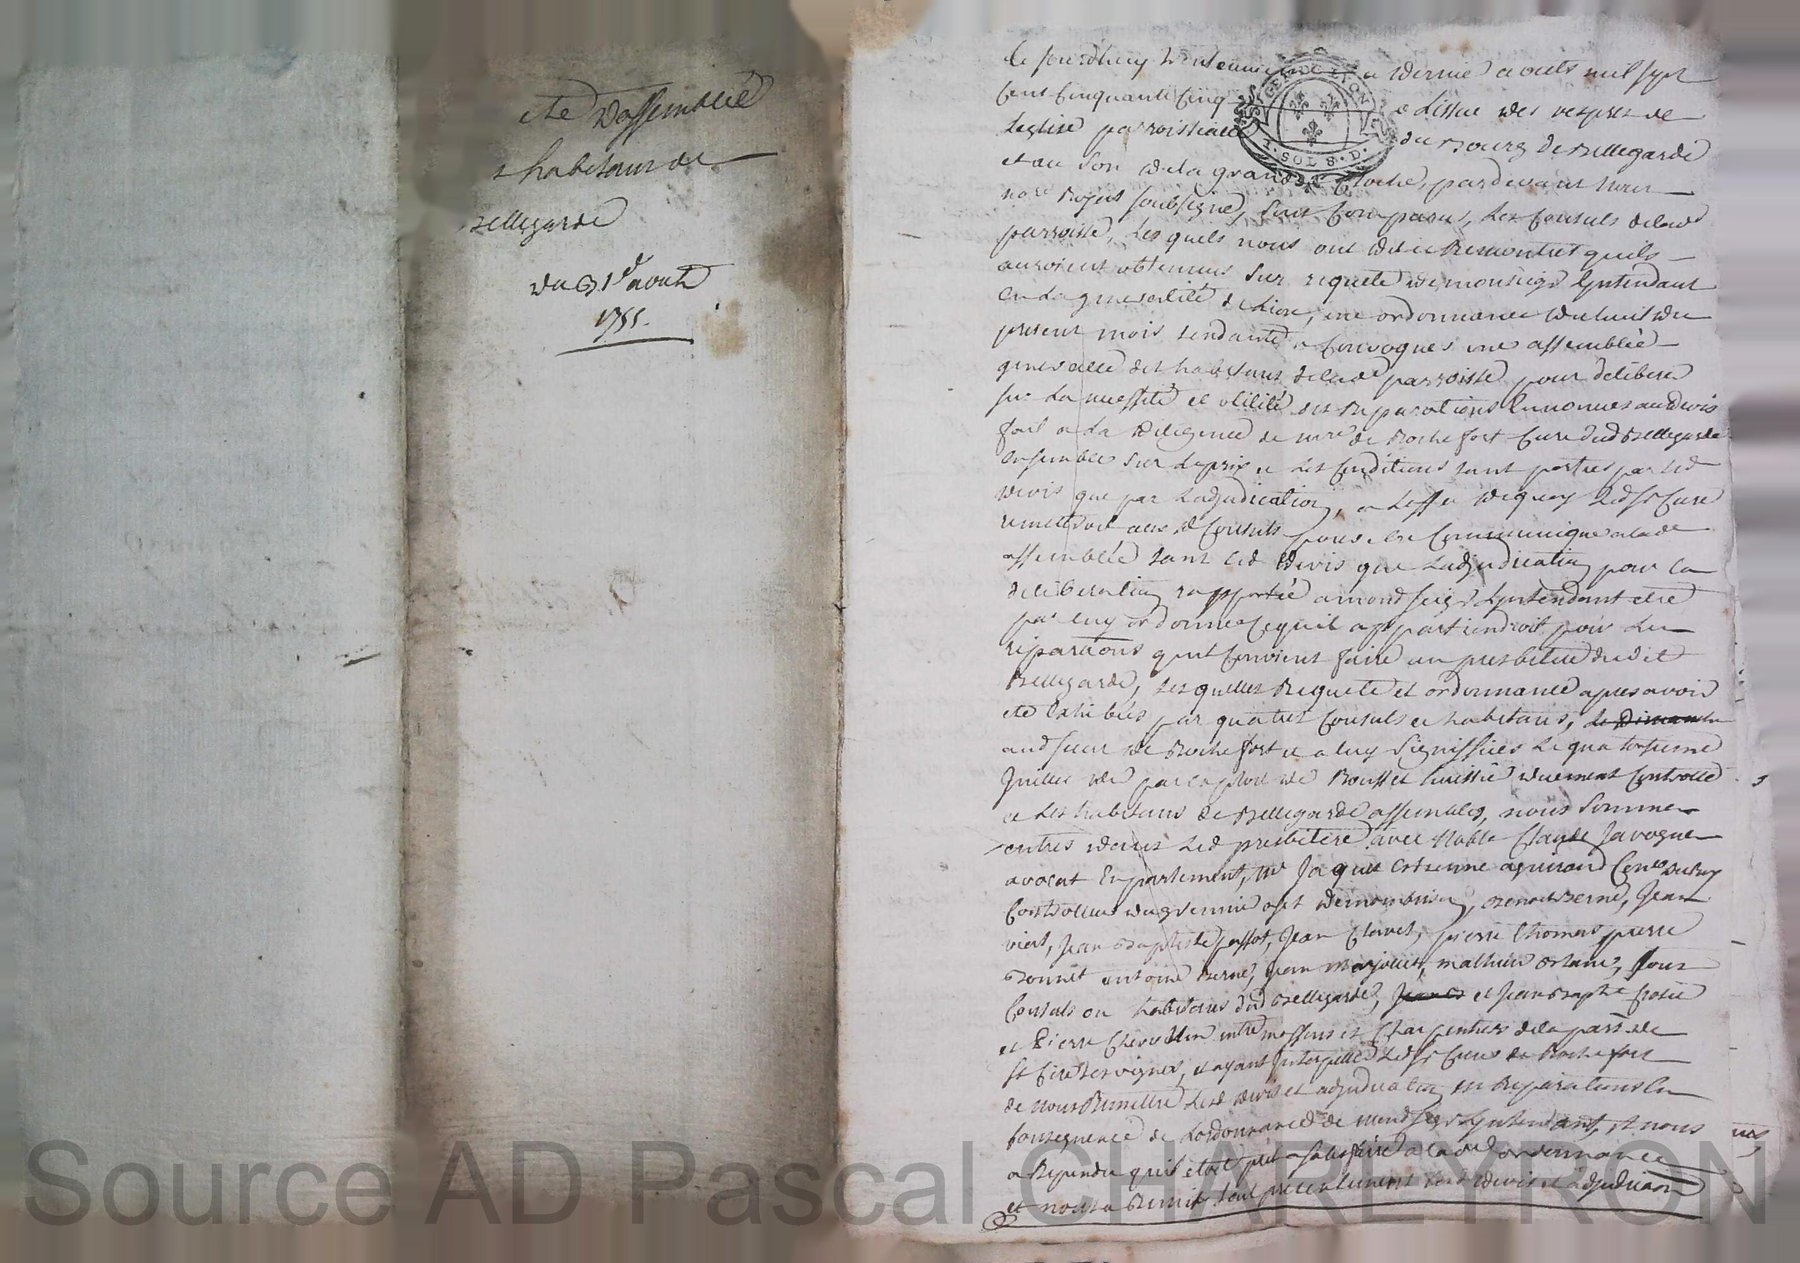 cte d'assemblée
s habitans de
Bellegarde
du 31e aoust
1755.
ce jourdhuy trente un et dernier aousts mil sept
cent cinquante cinq a Lissue des vespres de
Leglise parroissialle du Bourg de Bellegarde
et au son de la grande Cloche, pardevant nous
nore Royal soussigné, sont comparus, Les Consuls de lad
parroisse, Lesquels nous ont dit et Remontret quils
auroient obtenus sur requete de monseigr Lyntendant
en La generalité de Lion, une ordonnance du huit du
present mois tendante a convoquer une assemblée
generalle des habitans de lade parroisse pour deliberer
sur La necessité et utilité des Reparations Enoncées au devis
fait a La diligence de mre de Rochefort Curé dud Bellegarde
ensemble sur Le prix et Les Conditions tant portées par Led
devis que par Ladjudication, a Leffet de quoy Led sr Curé
remettroit aux d Consuls pour en Communiquer a lade
assemblée tant led devis que Ladjudication pour la
deliberation rapportée a mond seigr Lyntendant etre
par luy ordonné ce quil appartiendroit pour Les
reparations quil Convient faire au presbitere dudit
Bellegarde, Lesquelles Requete et ordonnance apres avoir
eté Exhibées par quatres Consuls et habitans, Le dimanche
aud sieur de Rochefort et a luy signiffiées Le quatorzieme
Juillet de par exploit de Rousset huissié duement Controllé
et Les habitans de Bellegarde assemblés, nous sommes
entrés dans Led presbitere avec Noble Claude Javogue
avocat En parlement, Mr Jacques Estienne aguiraud Coner du Roy
Controlleur du grenier a sel de monbrison, Benoit Berne, Jean
viers, Jean Baptiste passot, Jean Clavel, pierre Thomas, pierre
Bonnet antoine Berne, Jean Marjollet, mathieu ortans, tous
Consuls ou habitans dud Bellegarde, Jean B et Jean Baptte
et Pierre Chevallier mtre massons et Charpentiers de la parse de
St Cire Les vignes, et ayant Interpellé Led sr Curé de Rochefort
de nous Remettre Lesd devis et adjudication des Reparations En
Consequence de Lordonnance de mond seigr Lyntendant, et nous
a Repondu quil etoit pret a satisfaire a lade ordonnance
et nous a Remis tout presentement Lesd devis et adjudication
Source AD Pascal CHAREYRON